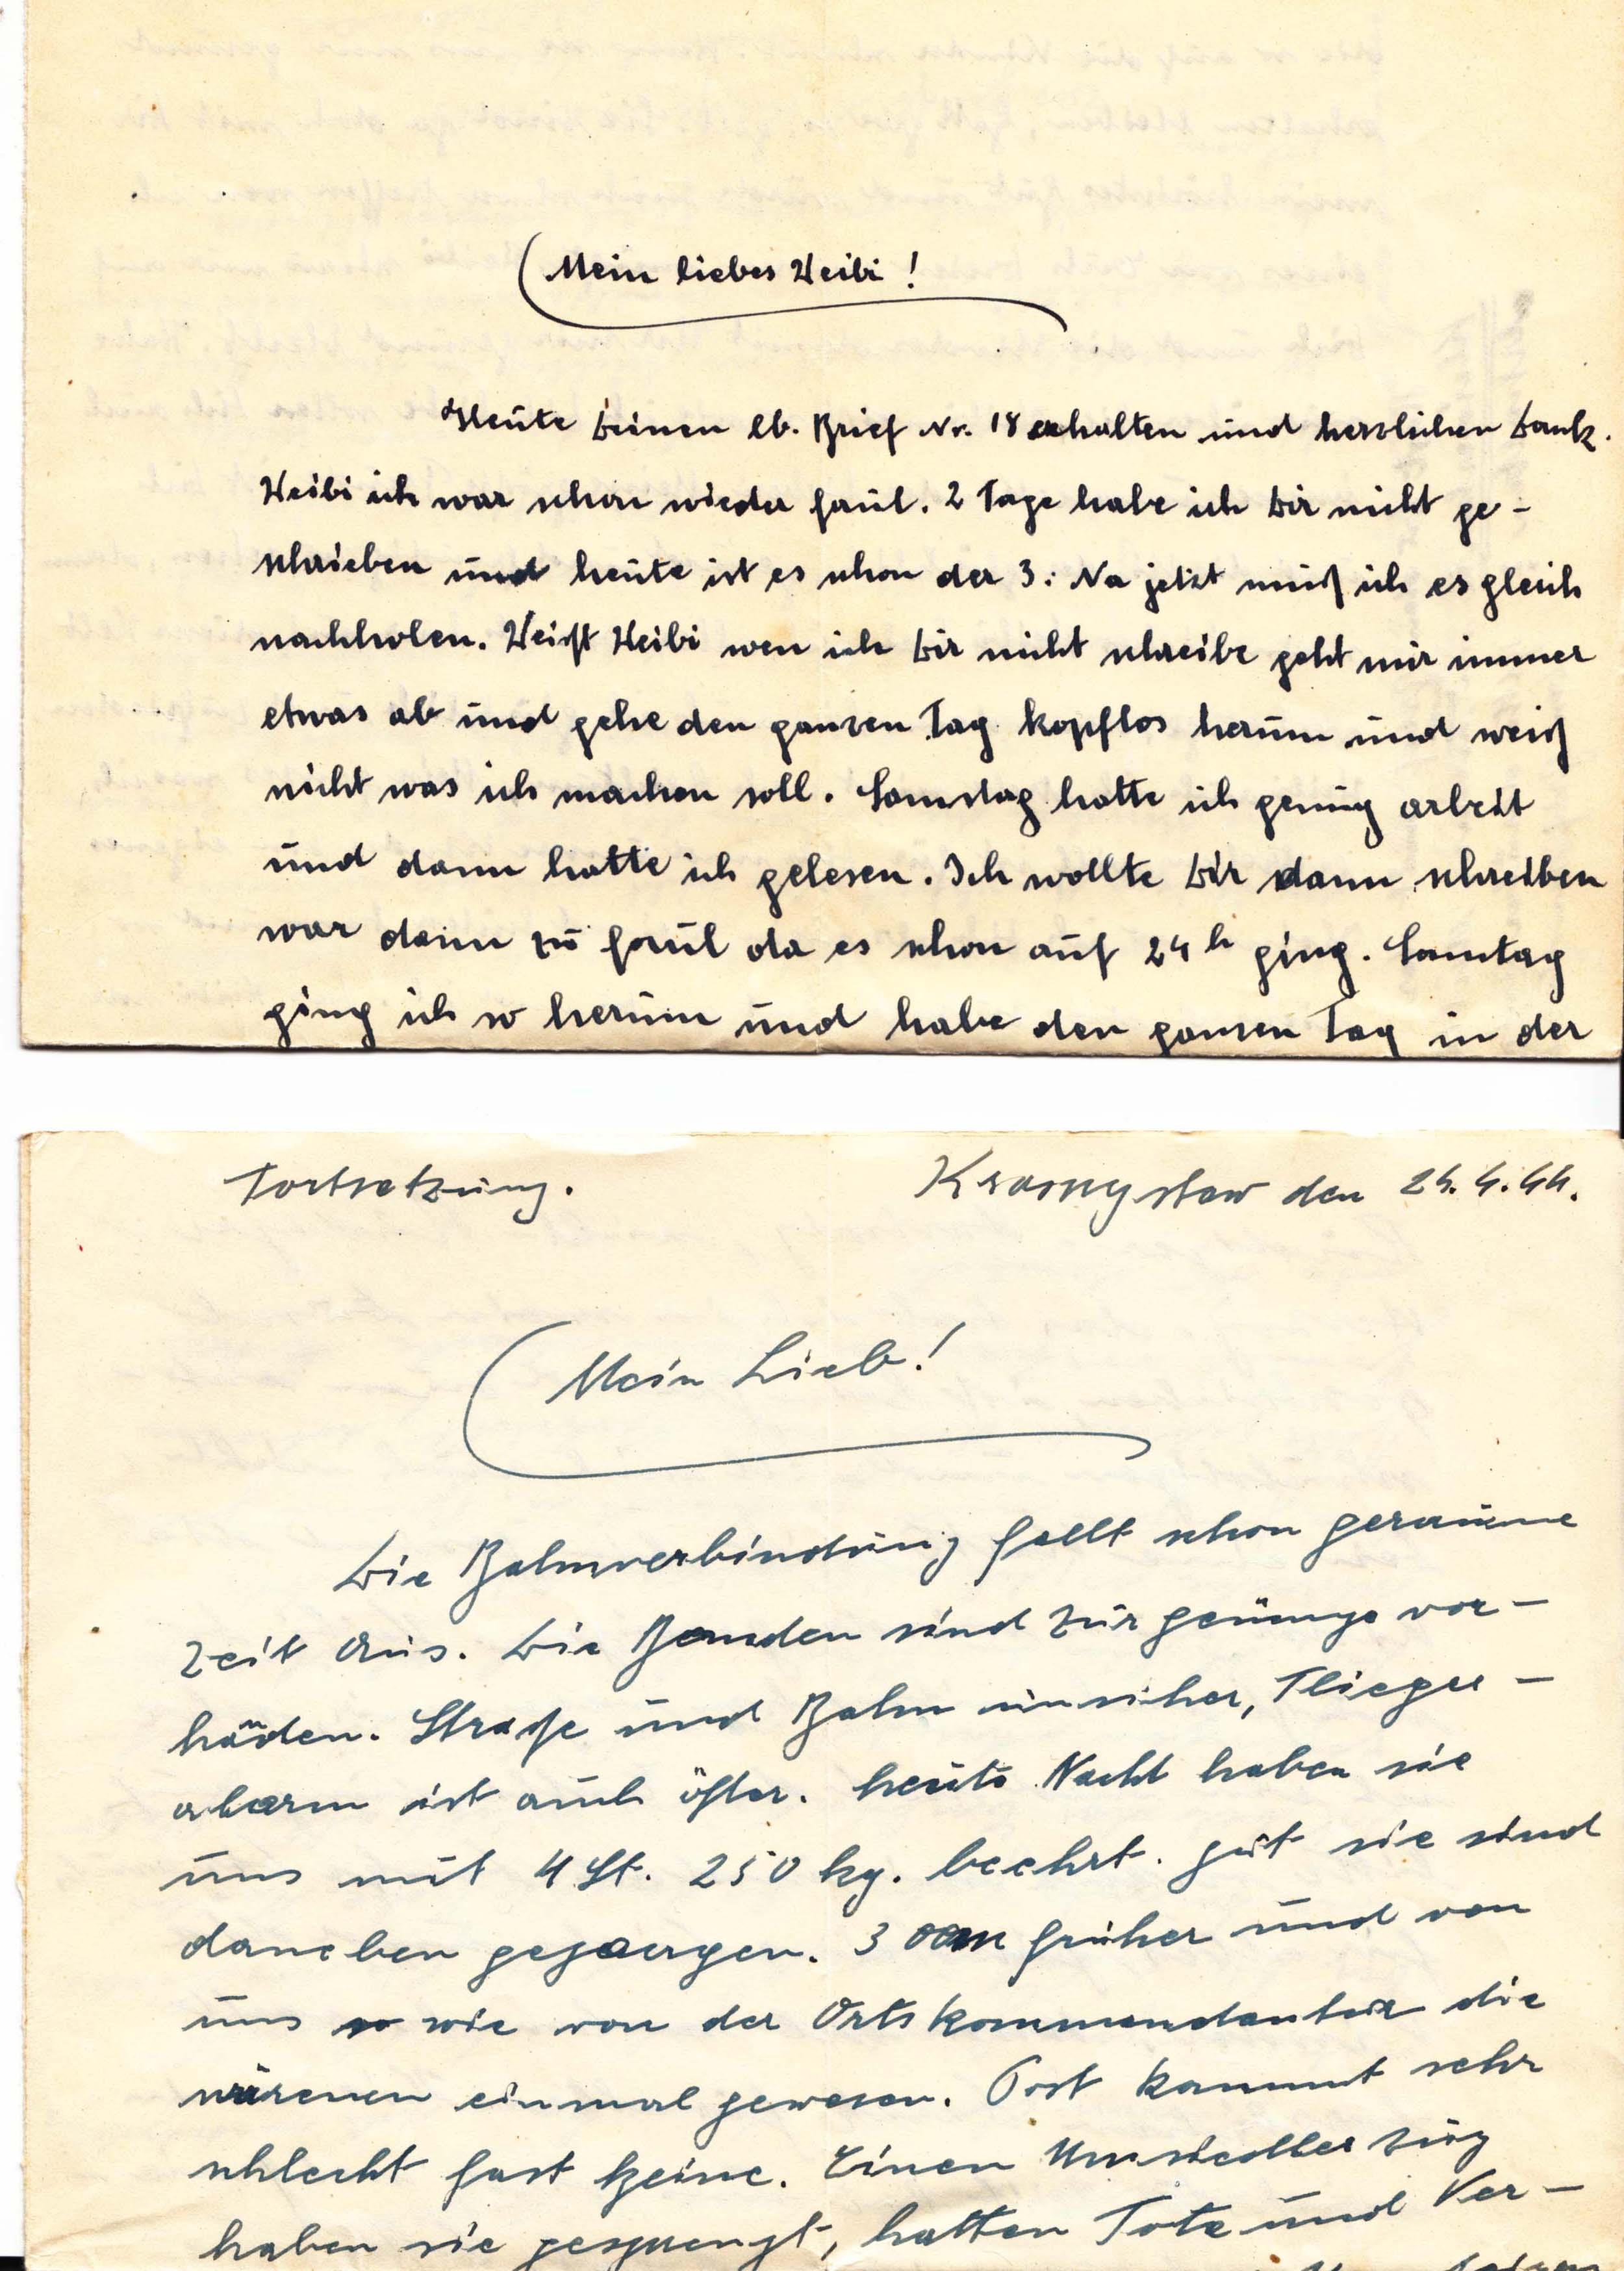 Mein liebes Weibi!
Heute Deinen lb. Brief Nr. 18 erhalten und herzlichen Dank.
Weibi ich war schon wieder faul. 2 Tage habe ich Dir nicht ge-
schrieben und heute ist es schon der 3. Na jetzt muß ich es gleich
nachholen. Weißt Weibi wen ich Dir nicht schreibe geht mir immer
etwas ab und gehe den ganzen Tag kopflos herum und weiß
nicht was ich machen soll. Samstag hatte ich genug arbeit
und dann hatte ich gelesen. Ich wollte Dir dann schreiben
war dann zu faul da es schon auf 24h ging. Sonntag
ging ich so herum und habe den ganzen Tag in der
Fortsetzung. Krasnystaw den 24.4.44.
Mein Lieb!
Die Bahnverbindung fällt schon geraume
Zeit aus. Die Banden sind zur genüge vor-
handen. Straße und Bahn unsicher, Flieger-
alarm ist auch öfter. heute Nacht haben sie
uns mit 4 St. 250 kg. beehrt. gut sie sind
daneben gegangen. 3 früher und von
uns wie von der Ortskommandantur die
wären einmal gewesen. Post kommt sehr
schlecht fast keine. Einen Umsiedler zug
haben sie gesprengt, hatten Tote und Ver-